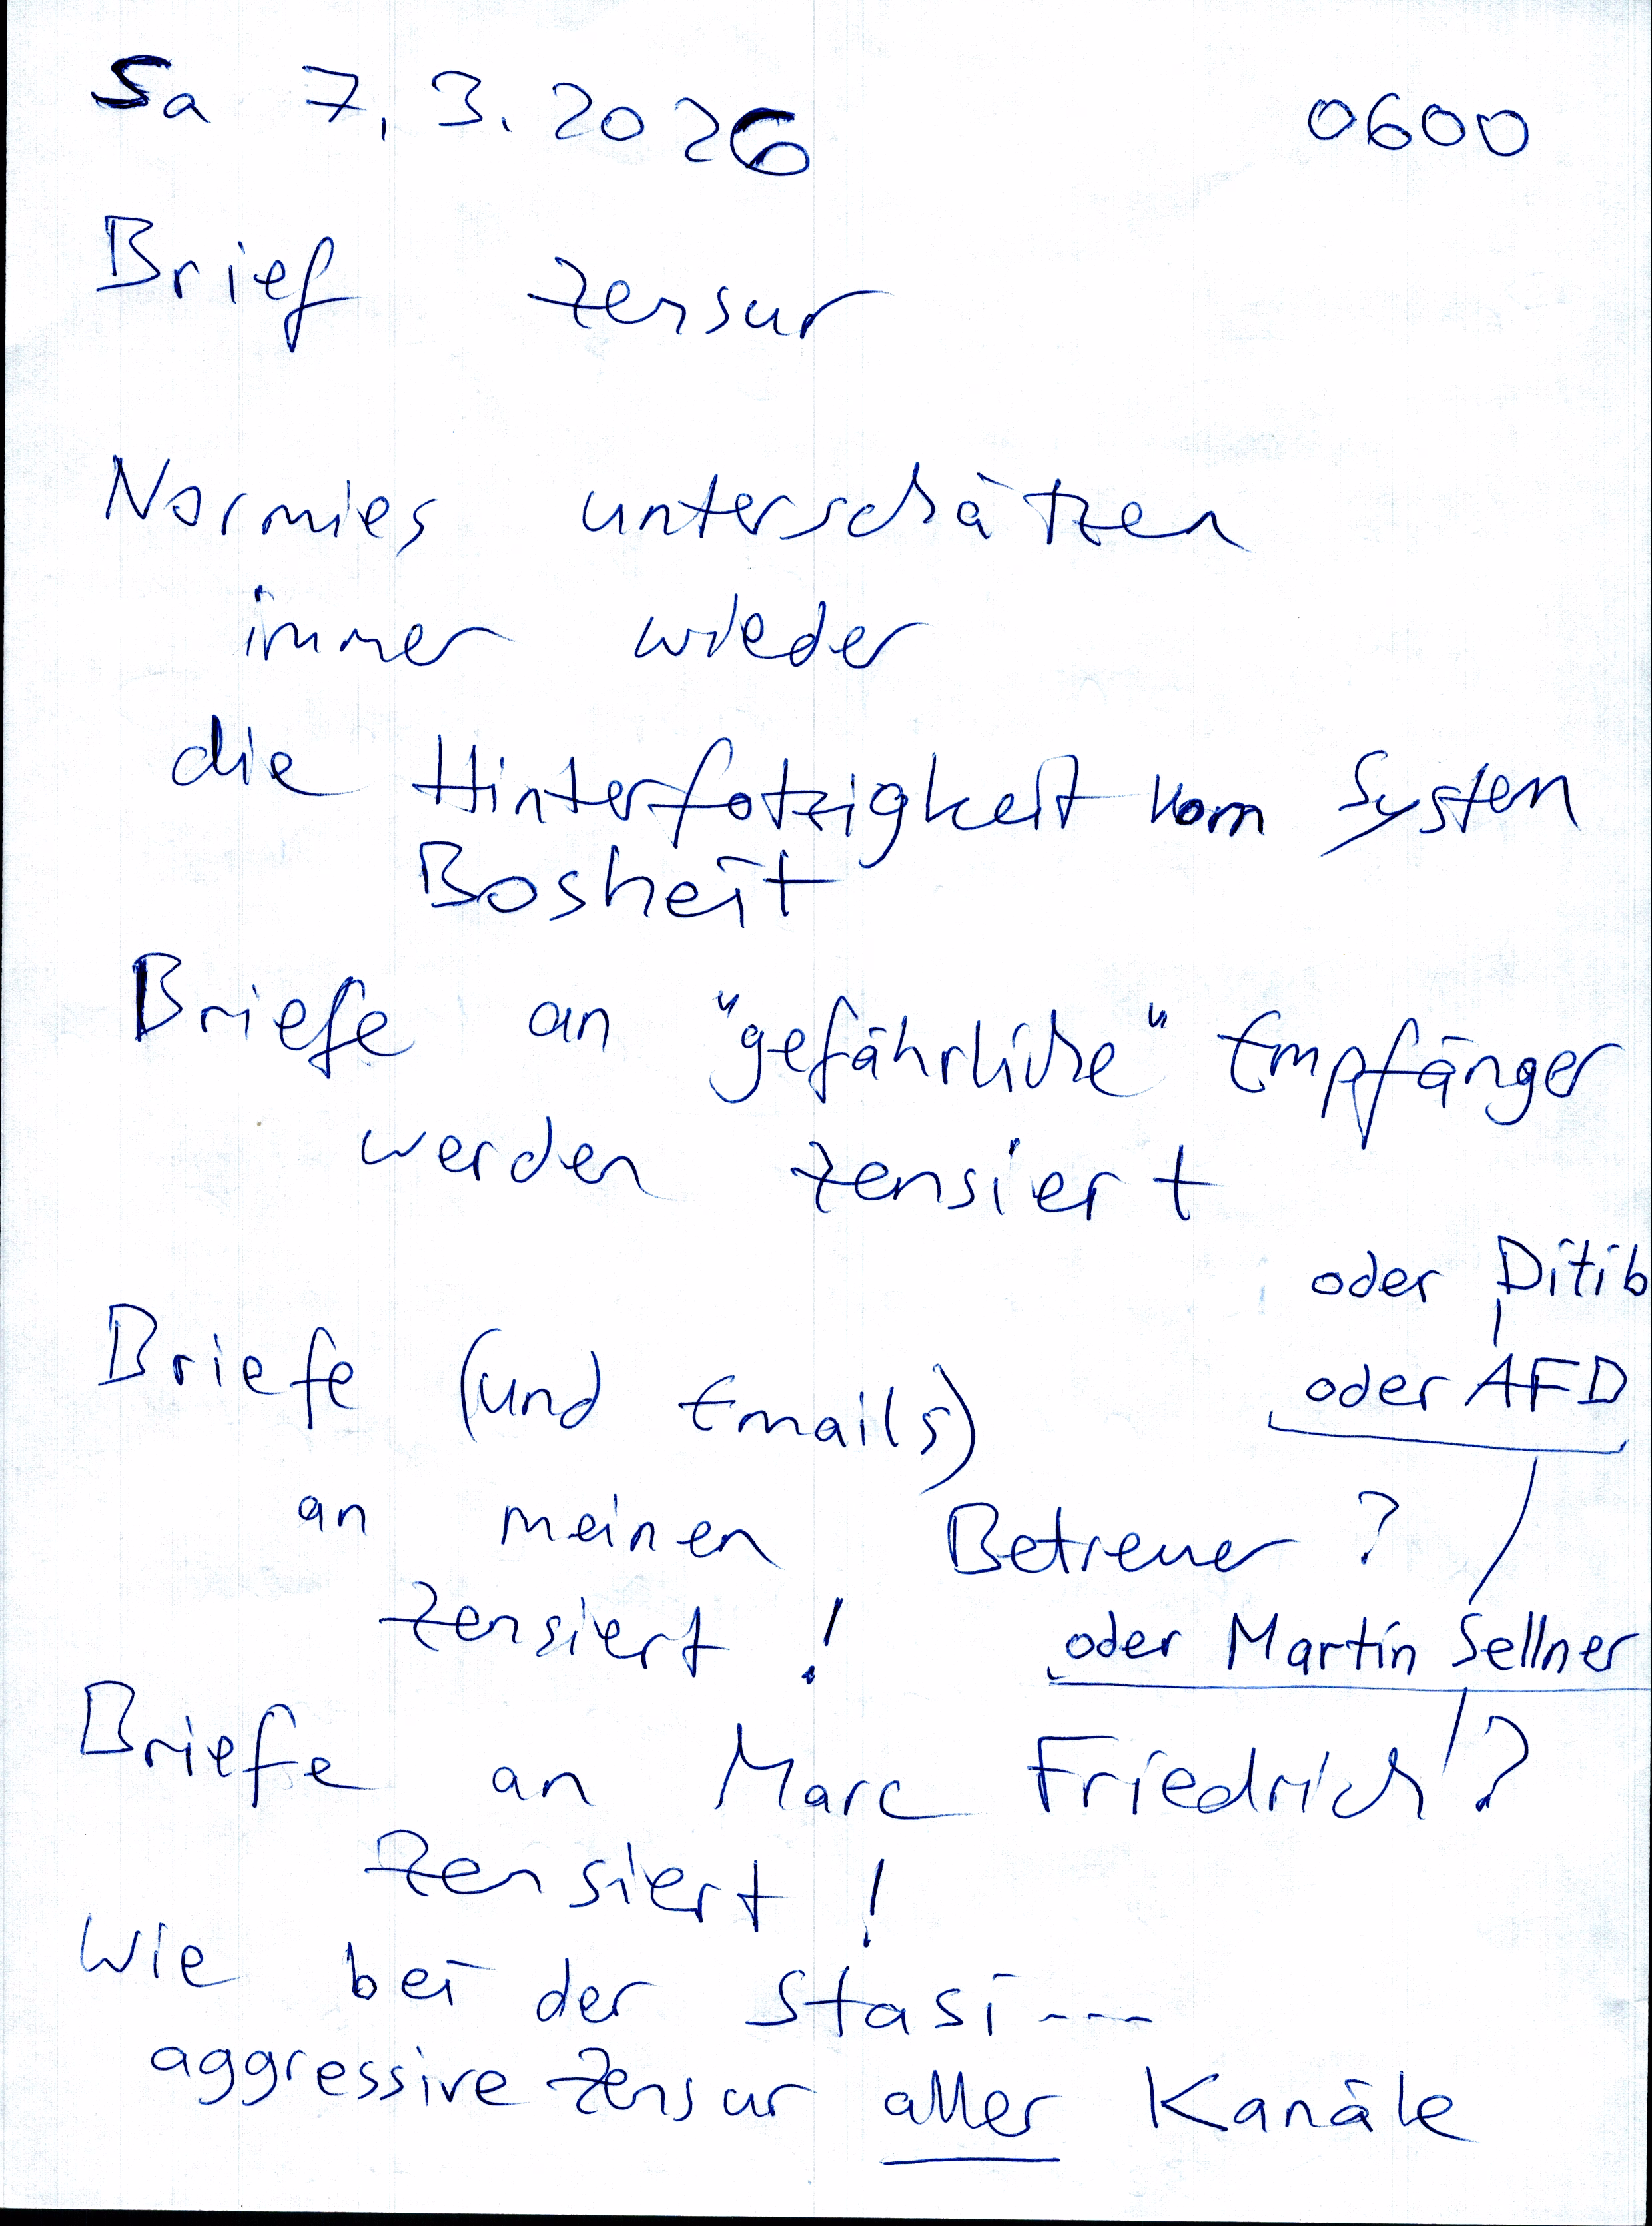 Sa 7.3.2026 0600
Brief Zensur
Normies unterschätzen
immer wieder
die Hinterfotzigkeit vom System
Bosheit
Briefe an "gefährliche" Empfänger
werden zensiert
oder Ditib
oder AFD
Briefe (und Emails)
an meinen Betreuer?
zensiert!
oder Martin Sellner
Briefe an Marc Friedrich?
zensiert!
Wie bei der Stasi---
aggressive Zensur aller Kanäle